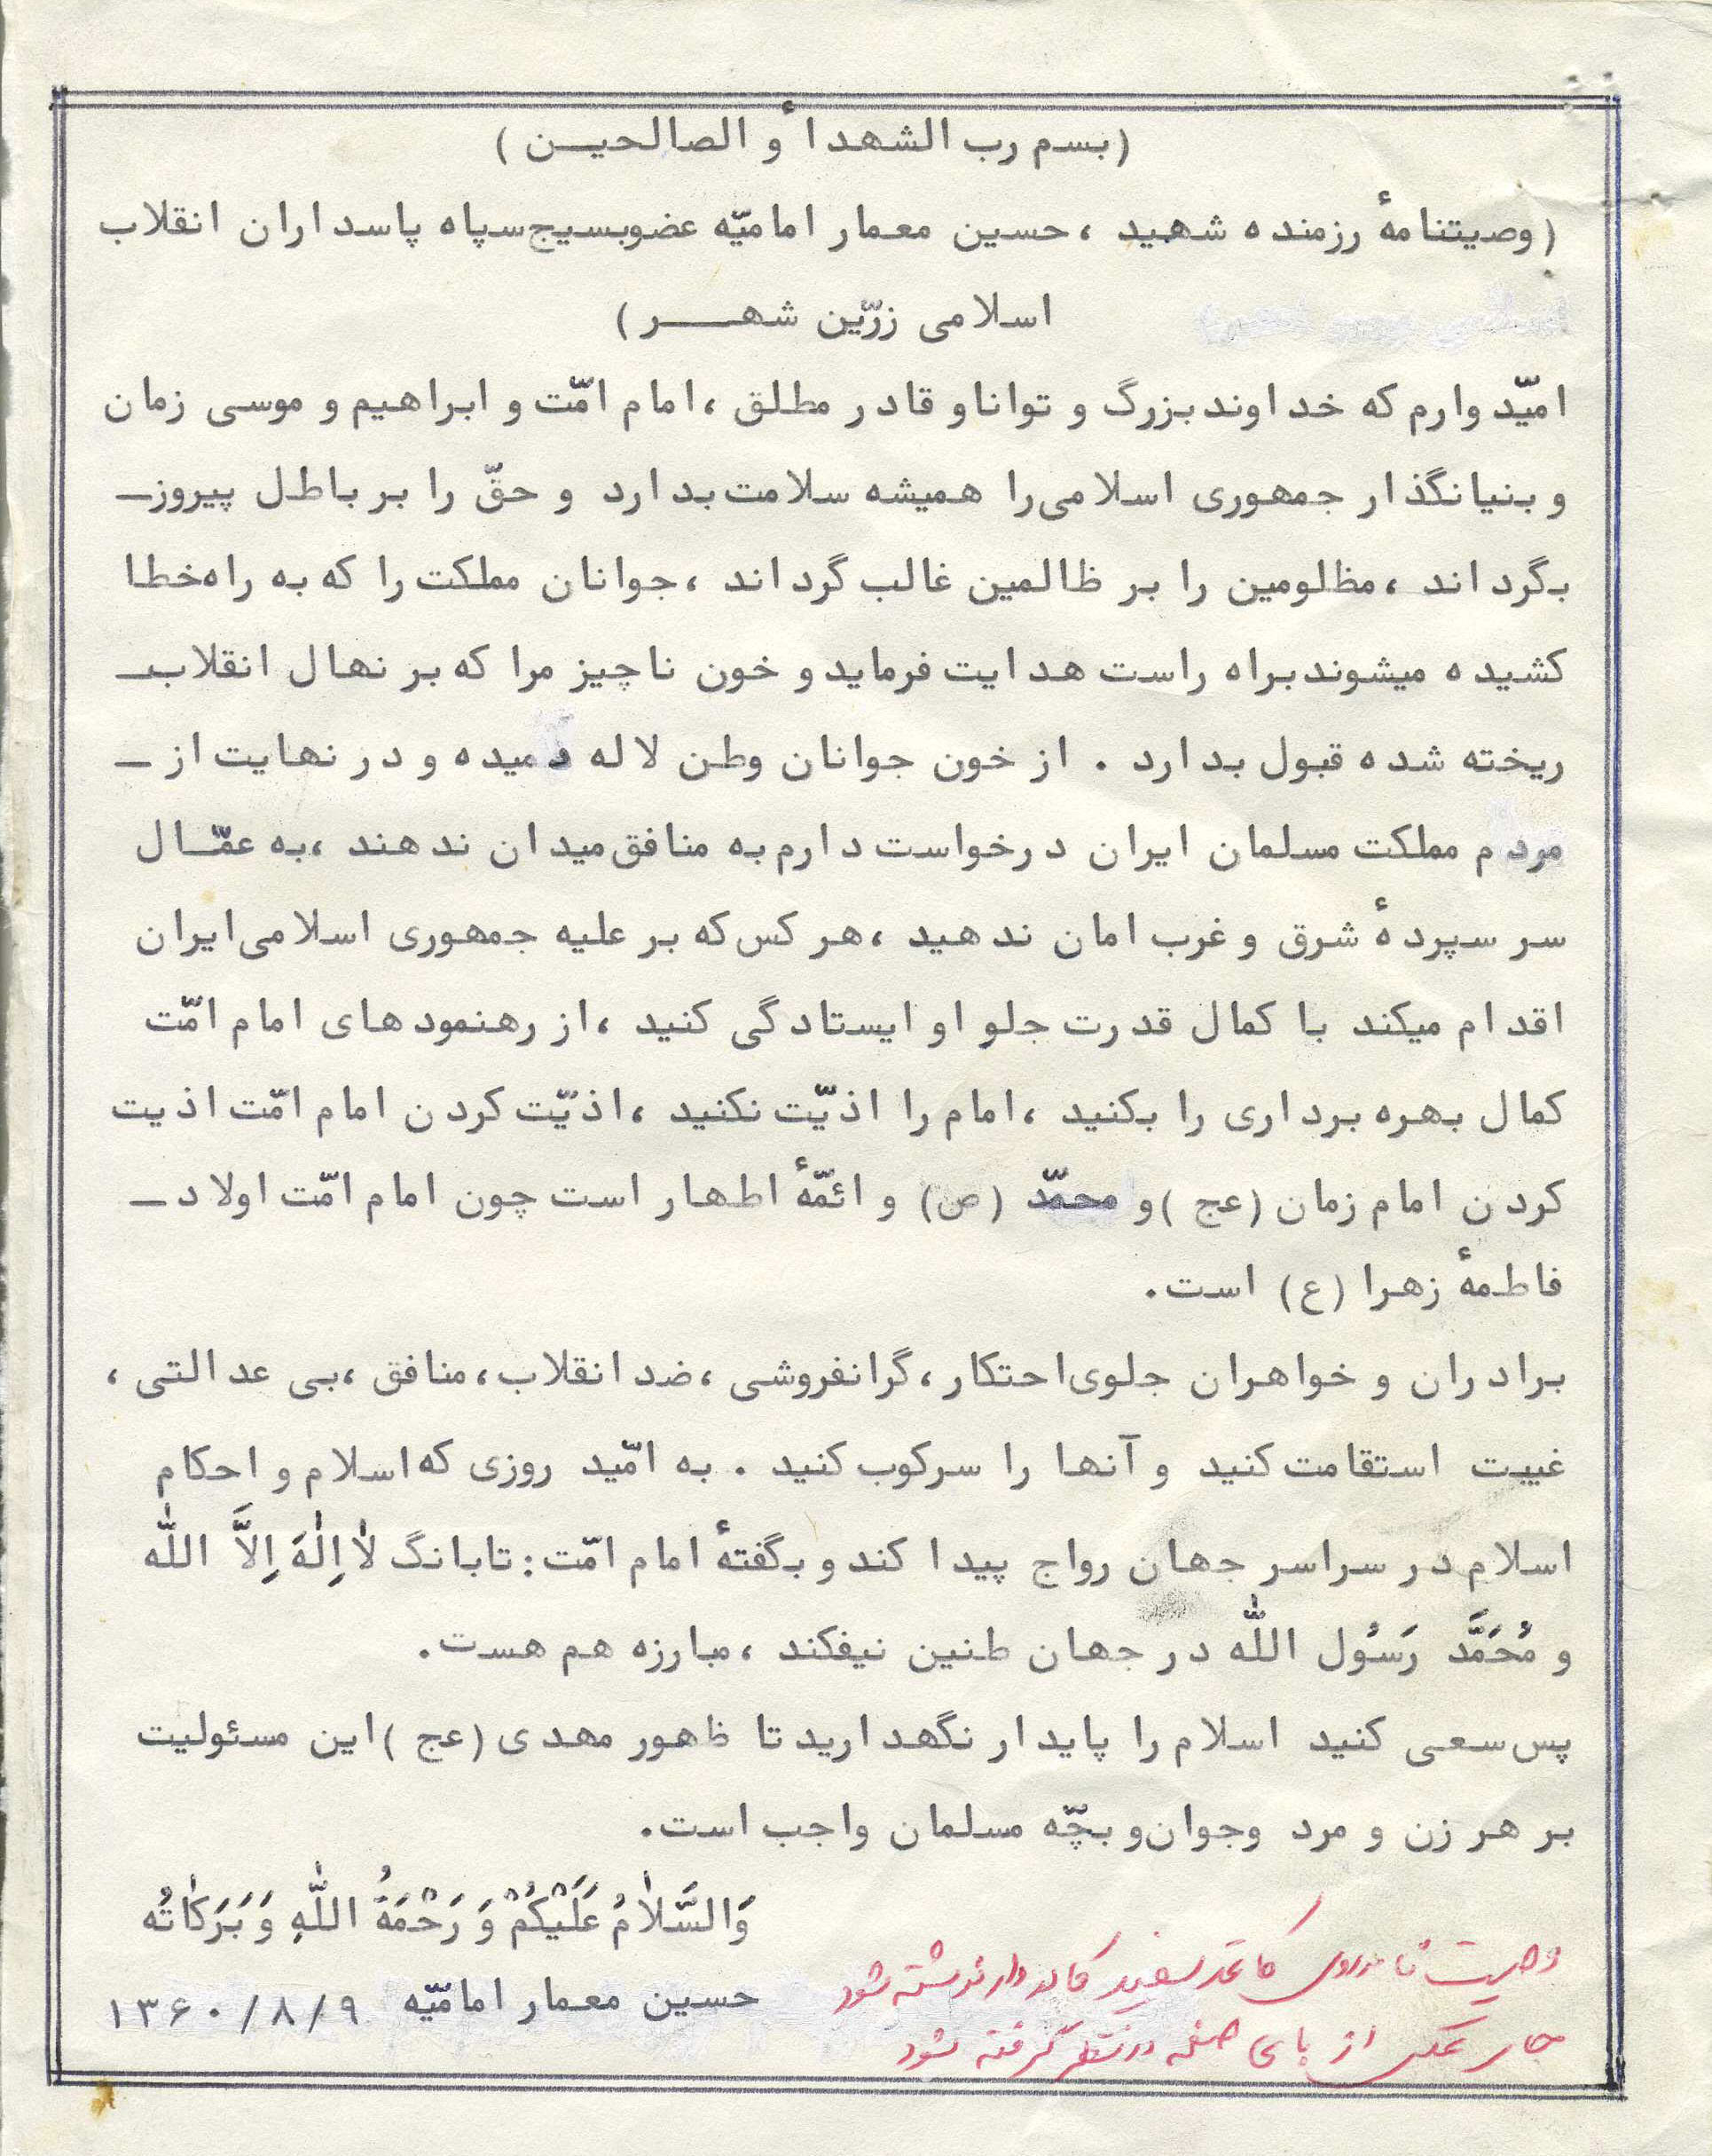 (بسم رب الشهداٴ و الصالحیـــن )
(وصیتنامهٔ رزمنده شهید ، حسین معمار امامیّه عضوبسیج سپاه پاسداران انقلاب
اسلامی زرّین شهـــــر )
امیّدوارم که خداوندبزرگ و تواناو قادر مطلق ،امام امّت و ابراهیم و موسی زمان
و بنیانگذار جمهوری اسلامی را همیشه سلامت بدارد و حقّ را بر باطل پیروزـ
بگرداند ، مظلومین را بر ظالمین غالب گرداند ،جوانان مملکت را که به راه خطا
کشیده میشوندبراه راست هدایت فرماید و خون ناچیز مرا که بر نهال انقلابـ
ریخته شده قبول بدارد . از خون جوانان وطن لاله دمیده و در نهایت از ـ
مردم مملکت مسلمان ایران درخواست دارم به منافق میدان ندهند ،به عمّــال
سر سپردهٔ شرق و غرب امان ندهید ،هر کس که بر علیه جمهوری اسلامی ایران
اقدام میکند با کمال قدرت جلو او ایستادگی کنید ،از رهنمودهای امام امّت
کمال بهره برداری را بکنید ،امام را اذیّت نکنید ،اذیّت کردن امام امّت اذیت
کردن امام زمان (عج )و محمّد (ص) و ائمّهٔ اطهار است چون امام امّت اولاد ـ
فاطمهٔ زهرا (ع) است.
برادران و خواهران جلوی احتکار ،گرانفروشی ،ضد انقلاب ،منافق ،بی عدالتی ،
غیبت استقامت کنید و آنها را سرکوب کنید . به امّید روزی که اسلام و احکام
اسلام در سراسر جهان رواج پیدا کند و بگفتهٔ امام امّت : تابانگ لاٰاِلٰهَ اِلاَّ اللّٰه
و مُحَمَّد رَسُول اللّٰه در جهان طنین نیفکند ، مبارزه هم هست.
پس سعی کنید اسلام را پایدار نگهدارید تا ظهور مهدی (عج )این مسئولیت
بر هر زن و مرد وجوان و بچّه مسلمان واجب است.
وَالسَّلاٰمُ عَلَیْکُمْ وَ رَحْمَةُ اللّٰهِ وَ بَرَکٰاتُه
حسین معمار امامیّه ۱۳۶۰/۸/۹
وصیت نامه روی کاغذ سفید کادر دار نوشته شود
جای عکس از بالای صفحه در نظر گرفته شود